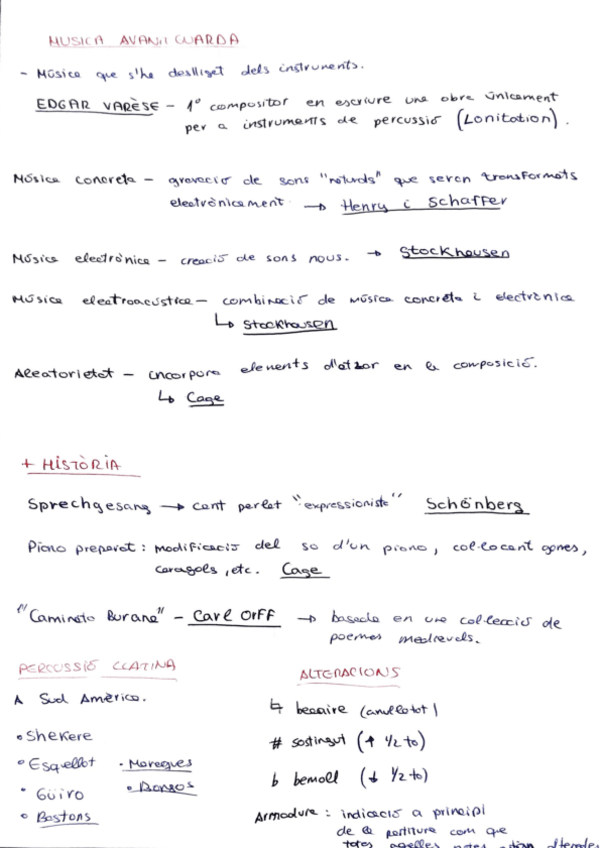 MUSICA AVANTGUARDA
- Música que s'ha deslligat dels instruments.
EDGAR VARÈSE - 1º compositor en escriure una obra únicament
per a instruments de percussió (Lonitation).
Música concreta - gravació de sons "naturals" que seran transformats
electrònicament → Henry i Schaffer
Música electrònica - creació de sons nous. → Stockhousen
Música electroacústica - combinació de música concreta i electrònica
↳ Stockhousen
Aleatorietat - incorpora elements d'atzar en la composició.
↳ Cage
+ HISTÒRIA
Sprechgesang → cant parlat "expressioniste" Schönberg
Piano preparat : modificació del so d'un piano, col·locant gomes,
caragols, etc. Cage
"Caminata Burana" - Carl Orff → basada en una col·lecció de
poemes medievals.
PERCUSSIÓ LLATINA
A Sud Amèrica.
• Shekere
• Esquellot
• Güiro
• Bastons
• Maragues
• Bongos
ALTERACIONS
♮ becaire (anul·la tot)
# sostingut (↑ 1/2 to)
b bemoll (↓ 1/2 to)
Armadura : indicació a principi
de la partitura com que
totes aquelles notes